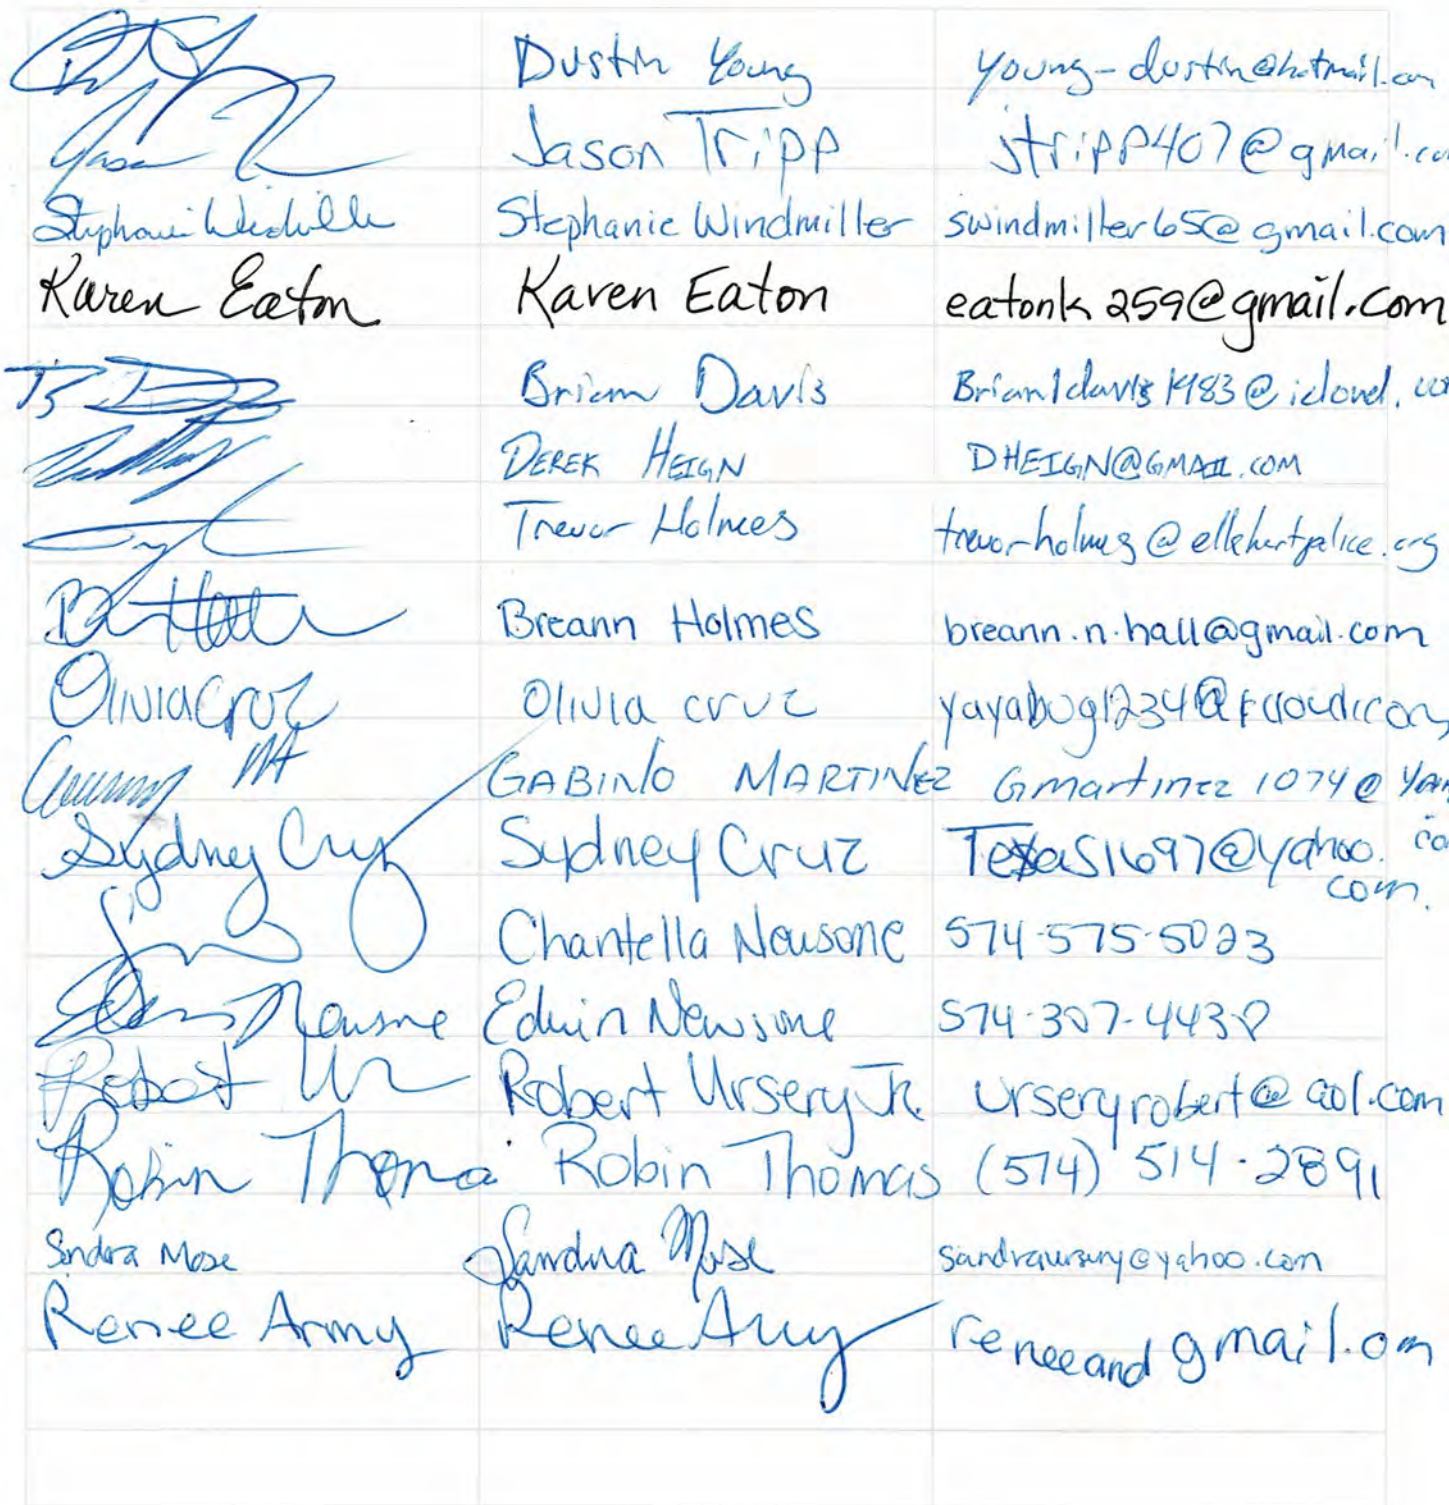 Dustin Young young-dustin@hotmail.com
Jason Tripp jtripp407@gmail.com
Stephanie Windmiller Stephanie Windmiller swindmiller65@gmail.com
Karen Eaton Karen Eaton eatonk259@gmail.com
Brian Davis Brian1davis1983@icloud.com
DEREK HEIGN DHEIGN@GMAIL.COM
Trevor Holmes trevor-holmes@elkhartpolice.org
Breann Holmes breann.n.hall@gmail.com
Olivia Cruz Olivia cruz yayabug1234@icloud.com
GABINO MARTINEZ Gmartinez1074@
Sydney Cruz Sydney Cruz Texas1697@yahoo.
com.
Chantella Newsome 574-575-5023
Newsome Edwin Newsome 574-307-4438
Robert Robert Ursery Jr. urseryrobert@aol.com
Robin Thomas Robin Thomas (574) 514-2891
Sandra Mose Sandra Mose sandraursery@yahoo.com
Renee Army Renee Army reneeand gmail.om